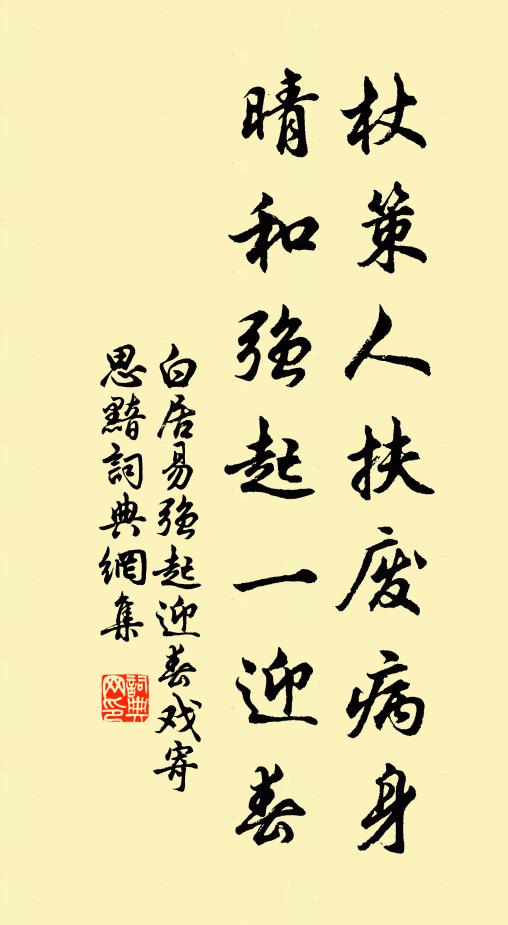 杖策人扶废病身
晴和強起一迎春
白居易強起迎春戏寄
思黯詞典網集
詞典
网印